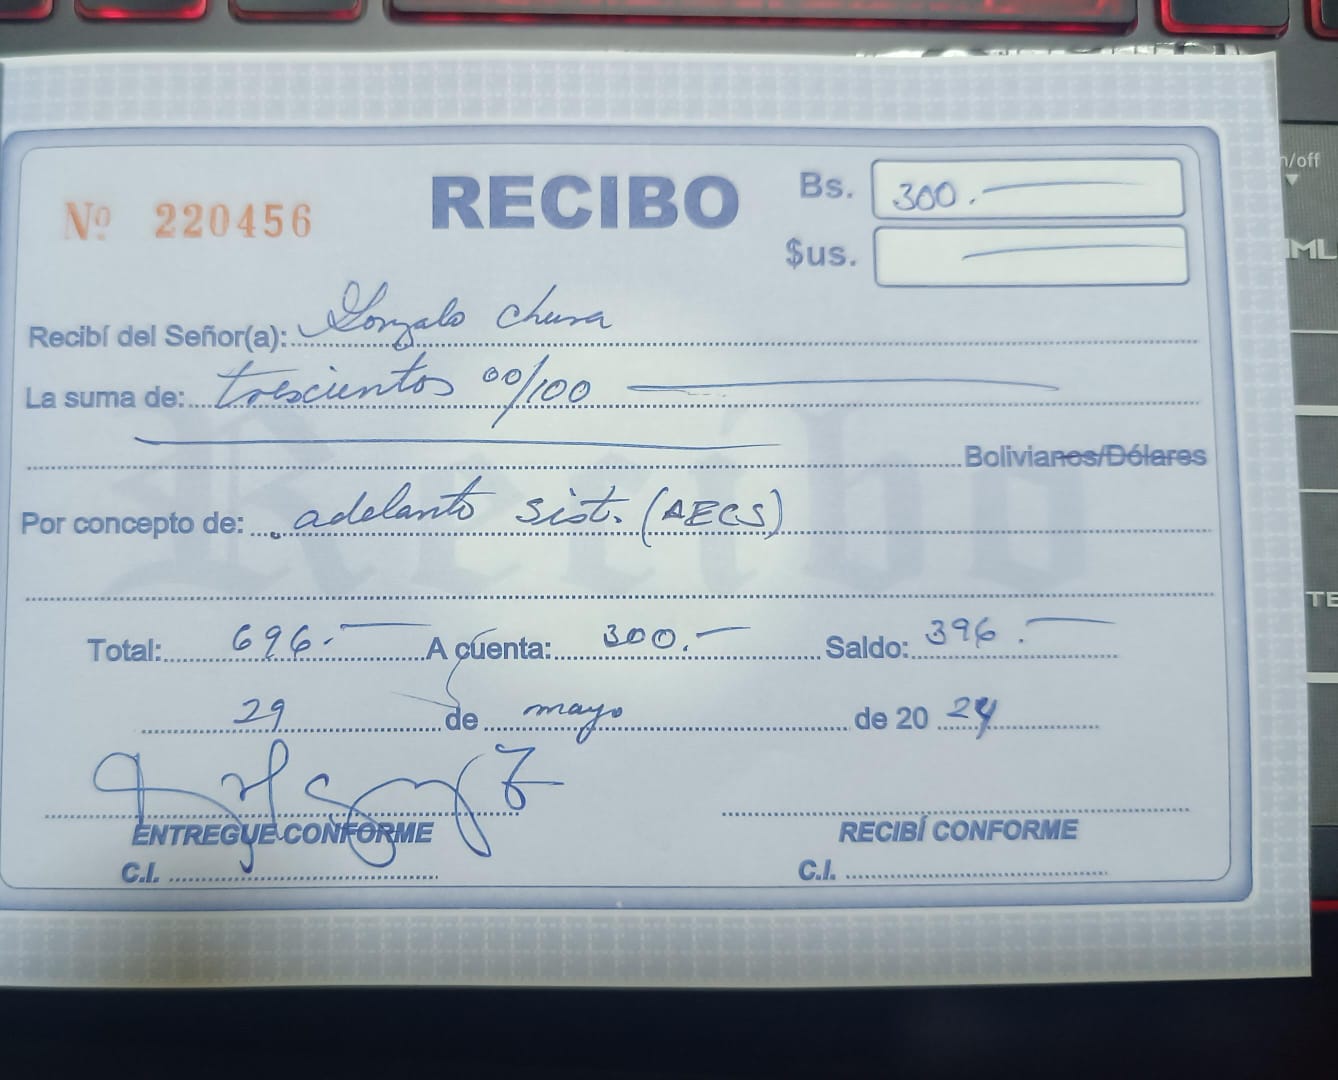 Nº 220456
RECIBO
Bs. 300.
$us.
Recibí del Señor(a): Gonzalo Chura
La suma de: trescientos 00/100
Bolivianos/Dólares
Por concepto de: adelanto sist. (AECS)
Total: 696.- A cuenta: 300.- Saldo: 396.-
29 de mayo de 20 24
ENTREGUE CONFORME RECIBÍ CONFORME
C.I. C.I.
n/off